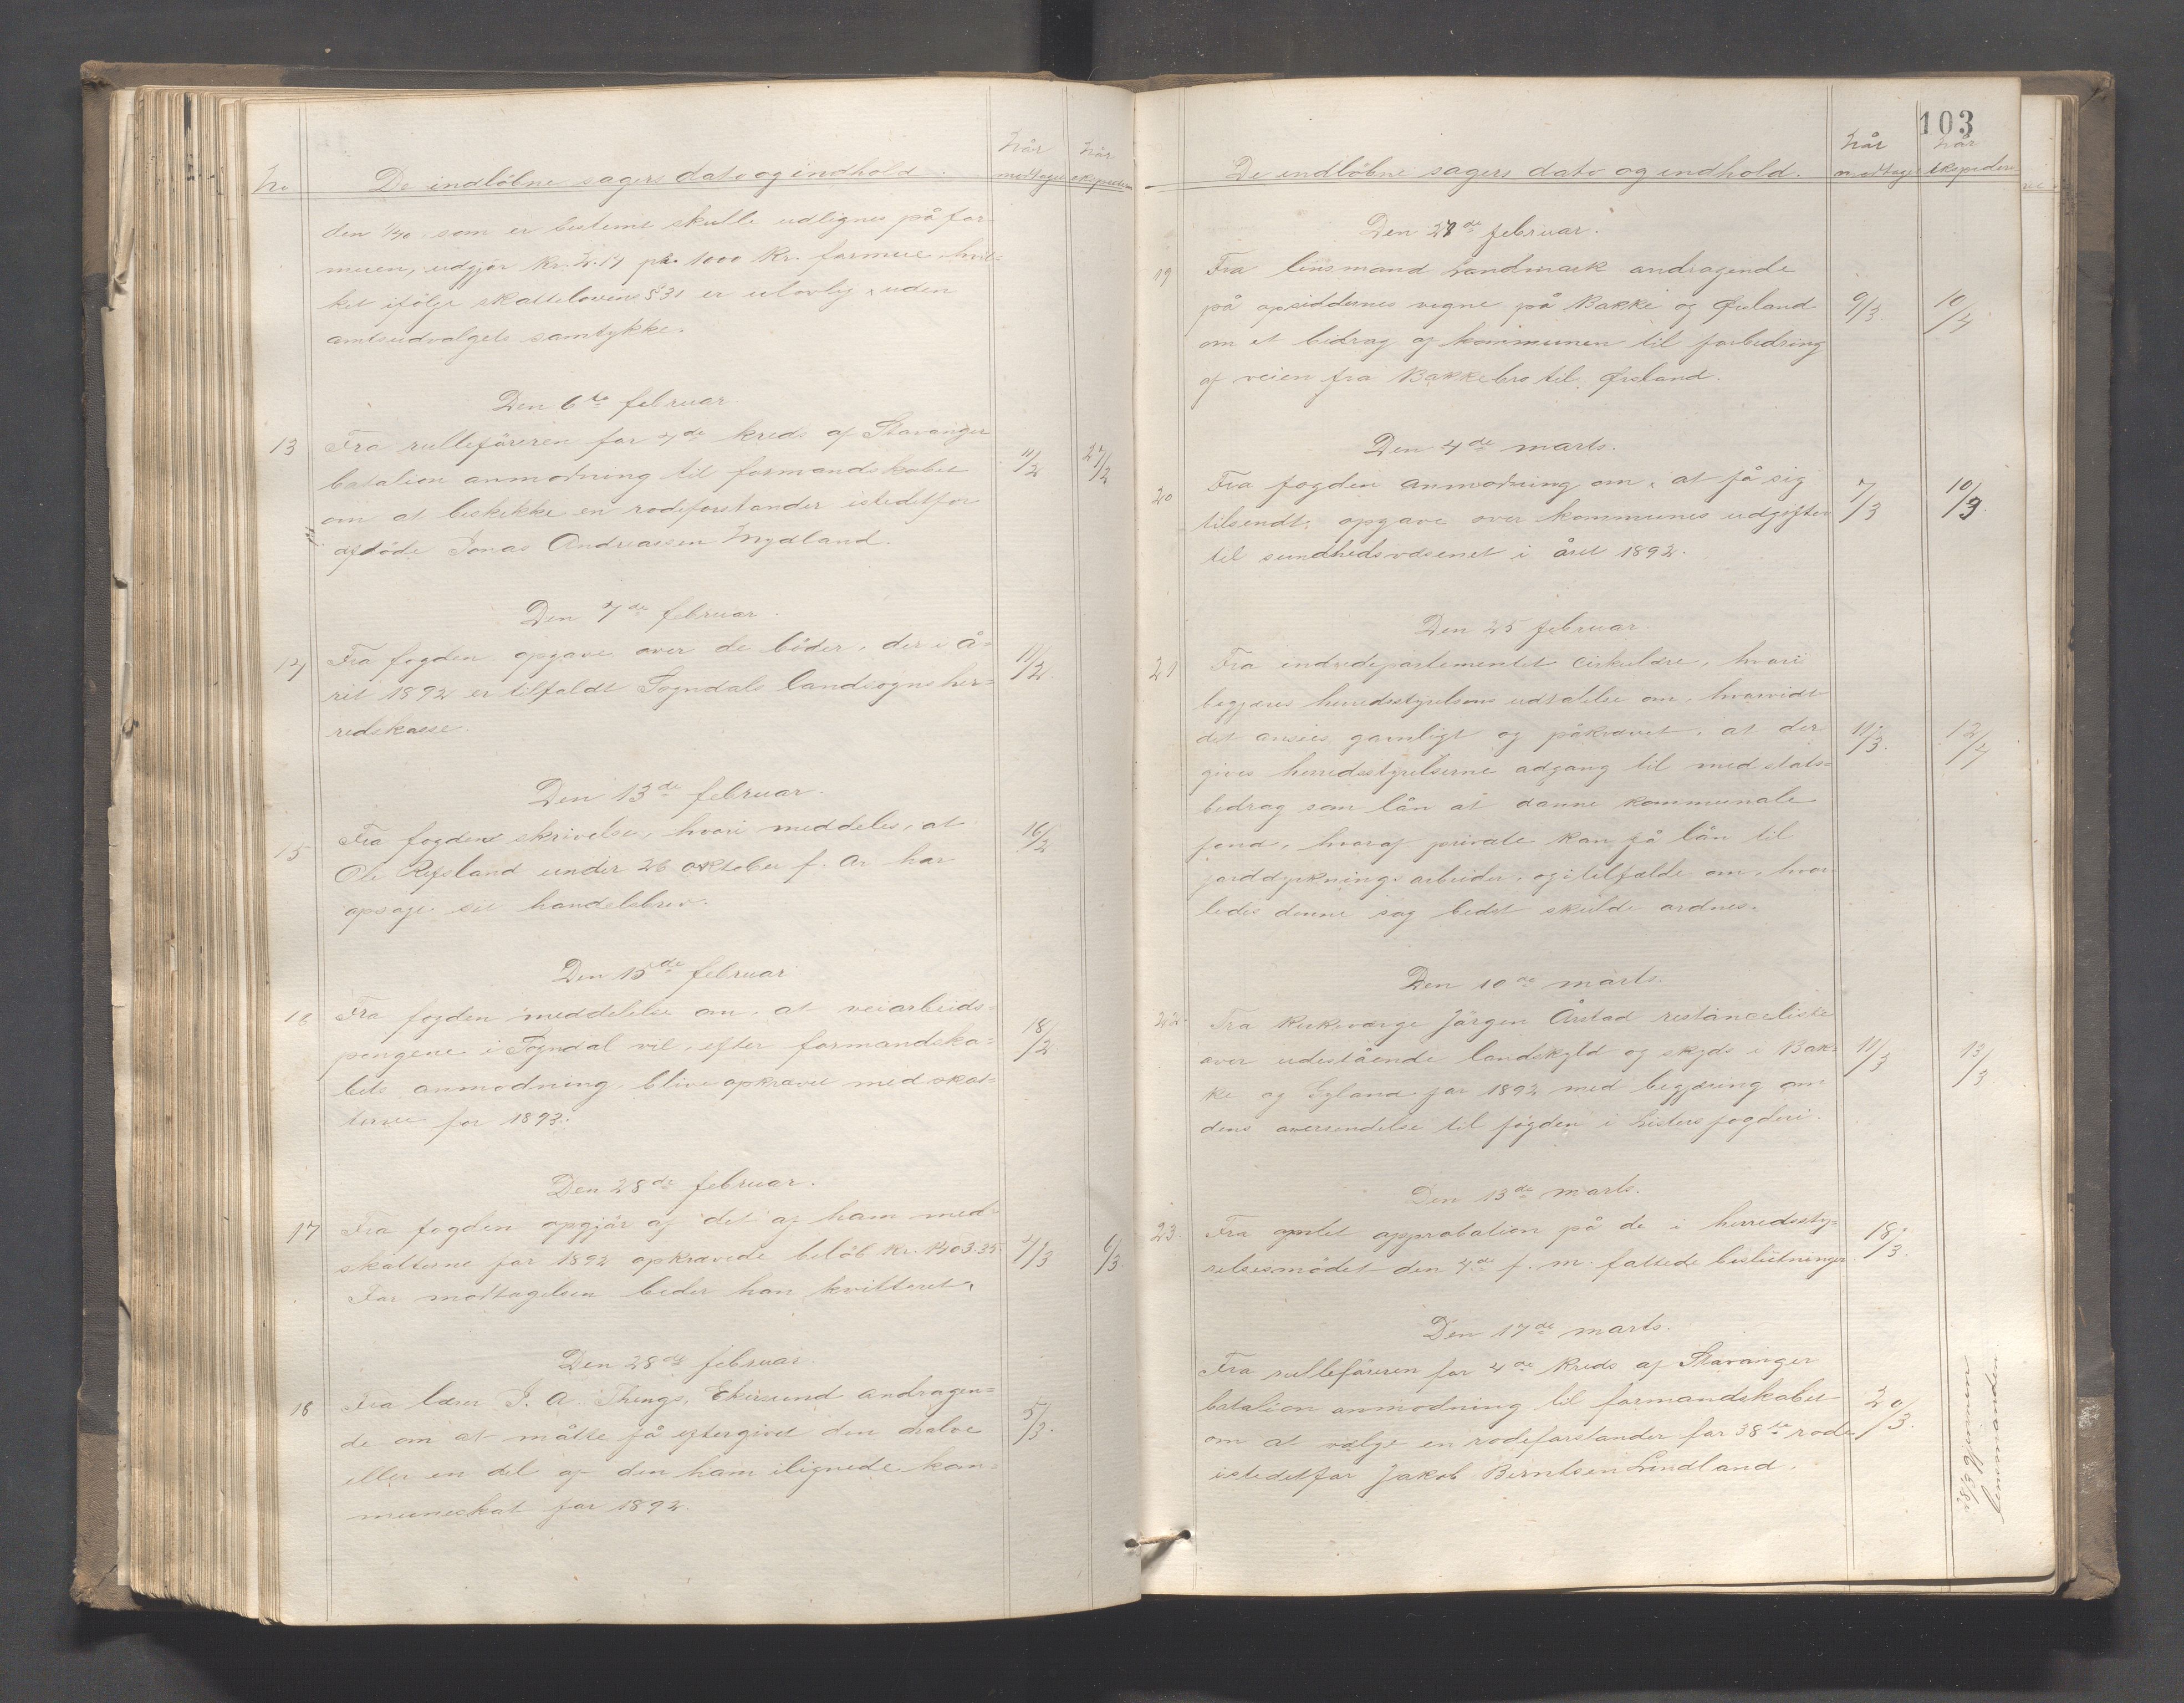 No
De indløbne sagers dato og indhold.
når modtaget
når ekspederet
den 1/40 som er bestemt skulle udlignes på for-
muen, udgjør kr. 2.14 pr. 1000 kr. formue, hvil-
ket ifølge skattelovens § 31 er ulovlig, uden
amtsudvalgets samtykke.
Den 6te februar.
13 Fra rulleføreren for 4de kreds af Stavanger 11/2 27/2
batalion anmodning til formandskabet
om at beskikke en rodeforstander istedetfor
afdøde Jonas Andreassen Mydland.
Den 7de februar.
14 Fra fogden opgave over de bøder, der i å- 11/2
ret 1892 er tilfaldt Sogndals landsogns her-
redskasse.
Den 13de februar.
15 Fra fogden skrivelse, hvori meddeles, at 16/2
Ole Refsland under 26 oktober f. år har
opsagt sit handelsbrev.
Den 15de februar
16 Fra fogden meddelelse om, at veiarbeids-
pengene i Sogndal vil, efter formandska- 18/2
bets anmodning, blive opkrævet med skat-
terne for 1893.
Den 28de februar.
17 Fra fogden opgjør af det af ham med-
skatterne for 1892 opkrævede beløb kr. 1203.35. 2/3 6/3
For modtagelsen beder han kvitteret.
Den 28de februar.
18 Fra lærer J. A. Thengs, Ekersund andragen- 5/3.
de om at måtte få eftergivet den halve
eller en del af den ham ilignede kom-
muneskat for 1892.
103
De indløbne sagers dato og indhold.
når modtaget
når ekspederet
Den 27de februar.
19 Fra lensmand Landmark andragende
på opsiddernes vegne på Bakke og Ørsland 9/3. 10/4
om et bidrag af kommunen til forbedring
af veien fra Bakkebro til Ørsland.
Den 4de marts.
20 Fra fogden anmodning om, at få sig 7/3 10/3.
tilsendt, opgave over kommunes udgifter
til sundhedsvæsenet i året 1892.
Den 25 februar.
21 Fra indredepartementet cirkulære, hvori
begjæres herredsstyrelsens udtalelse om, hvorvidt
det ansees gavnligt og påkrævet, at der 11/3. 12/4
gives herredsstyrelserne adgang til med stats-
bidrag som lån at danne kommunale
fond, hvoraf private kan få lån til
jorddyrkningsarbeider, og i tilfælde om, hvor-
ledes denne sag bedst skulde ordnes.
Den 10de marts.
22. Fra kirkeværge Jørgen Årstad restanceliste
over udestående landskyld og skyds i Bak- 11/3 13/3
ke og Gyland for 1892 med begjæring om
dens oversendelse til fogden i Listers fogderi.
Den 13de marts.
23. Fra amtet approbation på de i herredssty- 18/3.
relsesmødet den 4de f. m. fattede beslutninger
Den 17de marts.
Fra rulleføreren for 4de kreds af Stavanger
batalion anmodning til formandskabet 20/3.
om at vælge en rodeforstander for 38te rode
istedetfor Jakob Berntsen Lindland.
28/3 gjennem
lensmanden